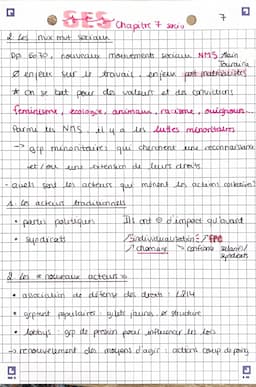 SES Chapitre 7 socio
7
2. Les nvx mvt sociaux
Dps 60.70, nouveaux mouvements sociaux NMS Alain
Touraine
∅ enjeux sur le travail, enjeux post matérialistes
* on se bat pour des valeurs et des convictions
féminisme, écologie, animaux, racisme, ouïghours...
Parmi les NMS, il y a les luttes minoritaires
→ grp minoritaires qui cherchent une reconnaissance
et/ou une extension de leurs droits
- quels sont les acteurs qui mènent les actions collectives?
1. les acteurs traditionnels
• partis politiques
Ils ont ⊖ d'impact qu'avant
• syndicats
↗ individualisation
↗ chomage → confiance salariés/
syndicats
2. les « nouveaux acteurs »
• association de défense des droits : L214
• grpment populaires : gilets jaunes, structure
• lobbys : grp de pression pour influencer les lois
→ renouvellement des moyens d'agir : actions coup de poing